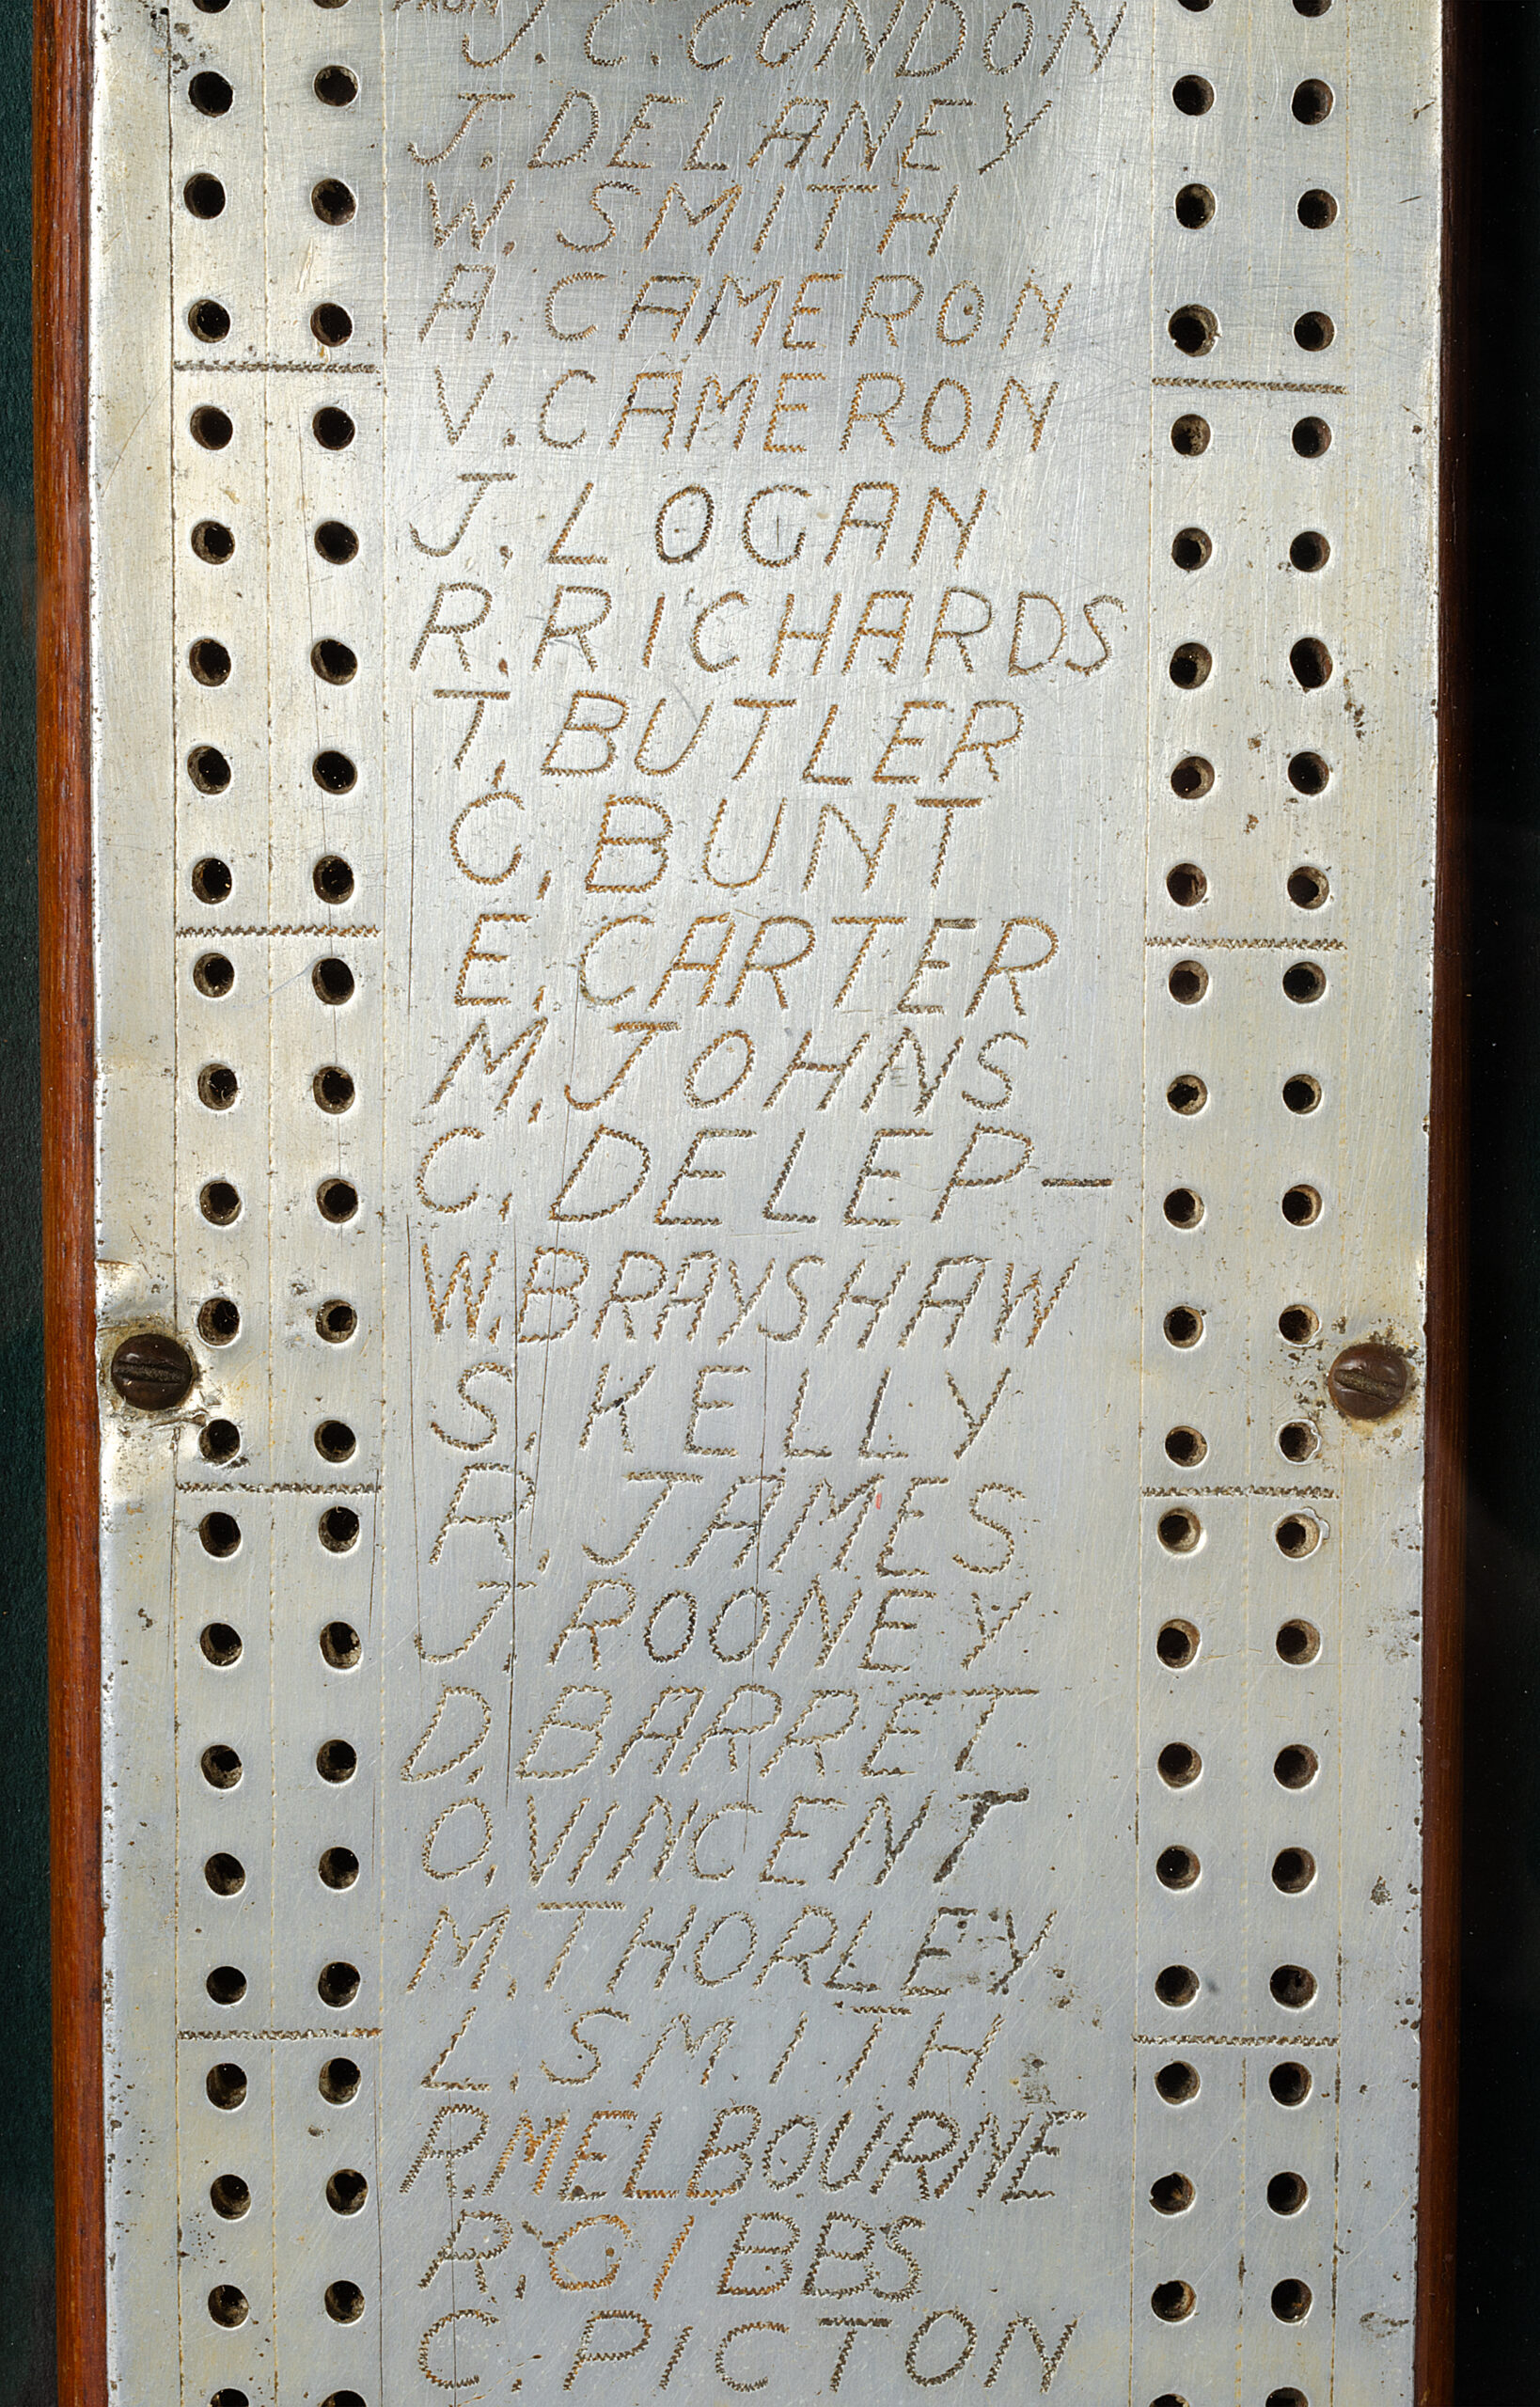 FROM
J. C. CONDON
J. DELANEY
W. SMITH
A. CAMERON
V. CAMERON
J. LOGAN
R. RICHARDS
T. BUTLER
C. BUNT
E. CARTER
M. JOHNS
C. DELEP-
W. BRAYSHAW
S. KELLY
R. JAMES
J. ROONEY
D. BARRET
O. VINCENT
M. THORLEY
L. SMITH
R. MELBOURNE
R. GIBBS
C. PICTON